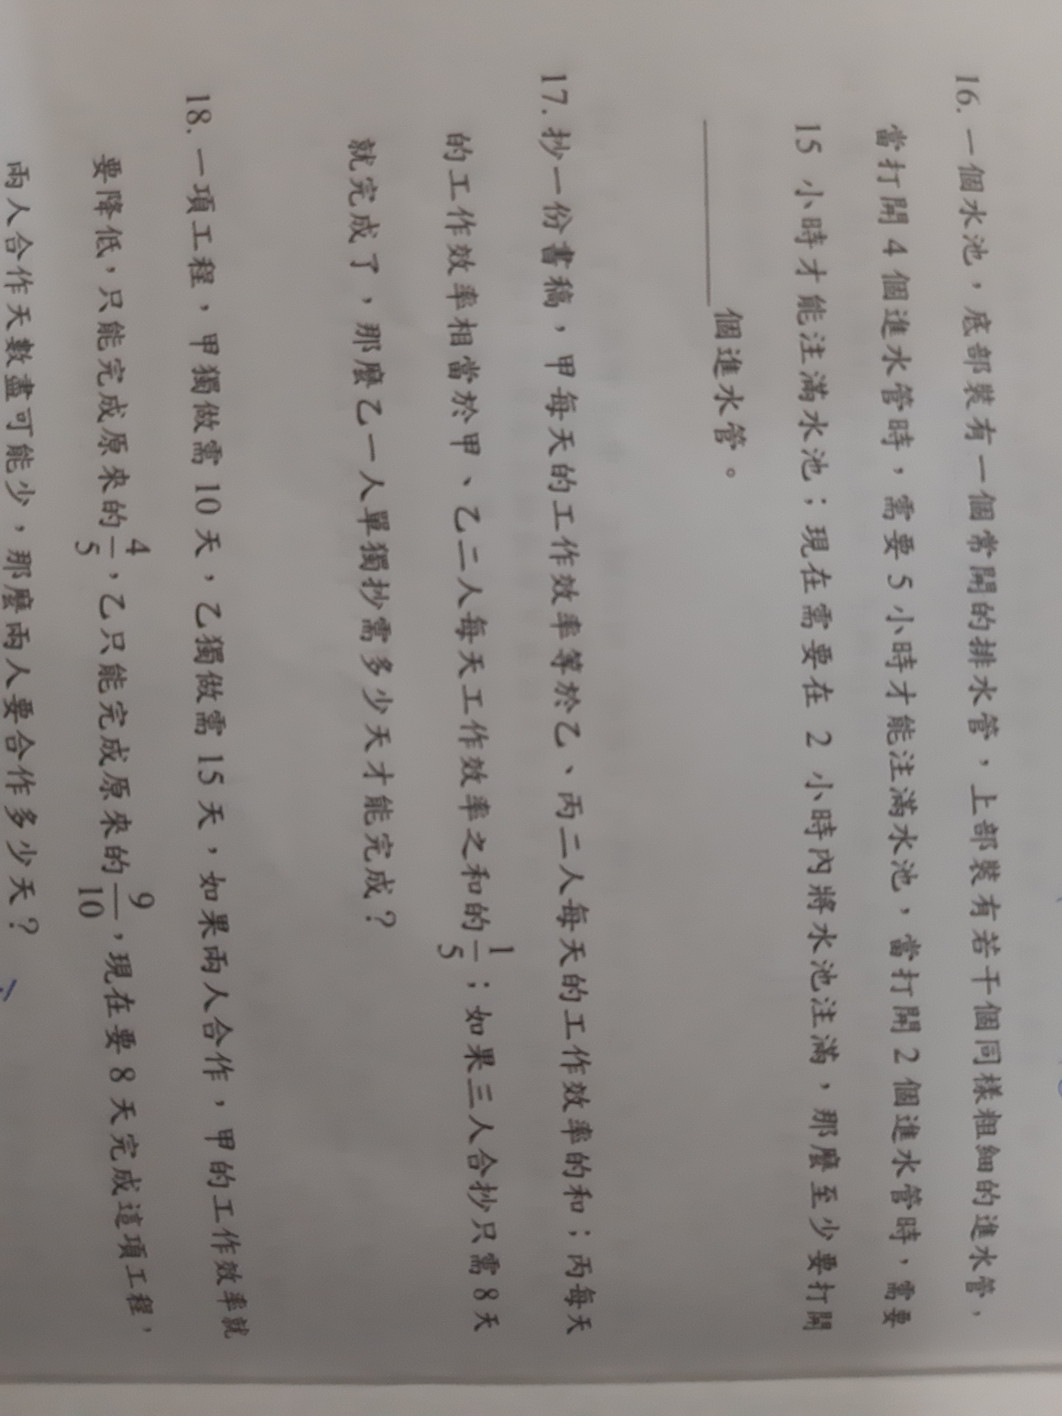 16. 一個水池，底部裝有一個常開的排水管，上部裝有若干個同樣粗細的進水管，
當打開 4 個進水管時，需要 5 小時才能注滿水池，當打開 2 個進水管時，需要
15 小時才能注滿水池；現在需要在 2 小時內將水池注滿，那麼至少要打開
________個進水管。
17. 抄一份書稿，甲每天的工作效率等於乙、丙二人每天的工作效率的和；丙每天
的工作效率相當於甲、乙二人每天工作效率之和的 1/5；如果三人合抄只需 8 天
就完成了，那麼乙一人單獨抄需多少天才能完成？
18. 一項工程，甲獨做需 10 天，乙獨做需 15 天，如果兩人合作，甲的工作效率就
要降低，只能完成原來的 4/5，乙只能完成原來的 9/10，現在要 8 天完成這項工程，
兩人合作天數盡可能少，那麼兩人要合作多少天？